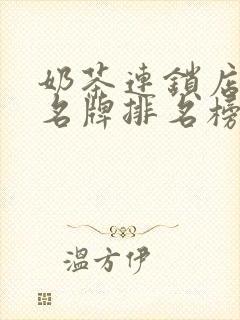 奶茶連鎖店
名牌排名榜
溫方伊